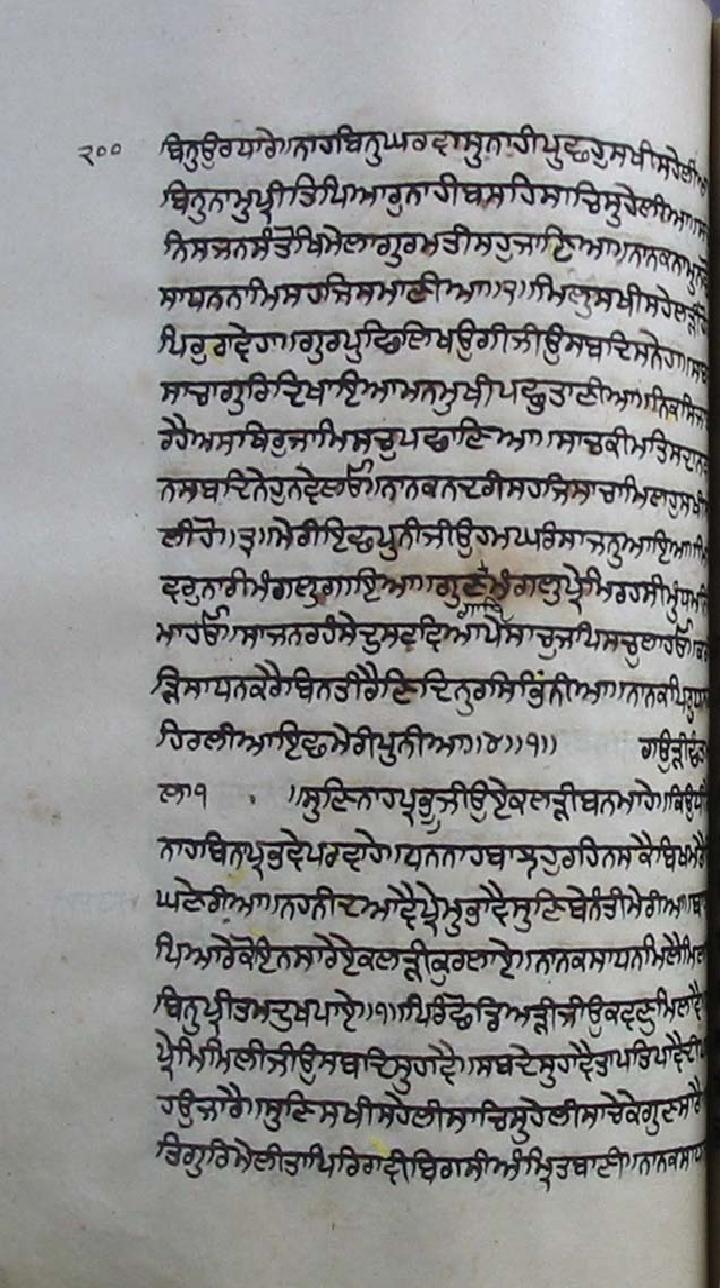 ੨੦੦ ਬਿਨੁਉਰਧਾਰੇ॥ਨਾਹਬਿਨੁਘਰਵਾਸੁਨਾਹੀਪੁਛਹੁਸਖੀਸਹੇਲੀਆ
ਬਿਨੁਨਾਮੁਪ੍ਰੀਤਿਪਿਆਰੁਨਾਹੀਬਸਹਿਸਾਚਿਸੁਹੇਲੀਆ॥
ਸਜਨਸੰਤੋਖਿਮੇਲਾਗੁਰਮਤੀਸਹੁਜਾਣਿਆ॥ਨਾਨਕਨਾਮੁਨ
ਸਾਧਨਨਾਮਿਸਹਜਿਸਮਾਣੀਆ॥੨॥ਮਿਲੁਸਖੀਸਹੇਲੜੀ
ਪਿਰੁਰਾਵੇਹਾ॥ਗੁਰਪੁਛਿਲਿਖਉਗੀਜੀਉਸਬਦਿਸਨੇਹਾ॥ਸਬ
ਸਾਚਾਗੁਰਿਦਿਖਾਇਆਮਨਮੁਖੀਪਛੁਤਾਣੀਆ॥ਨਿਕਸਿਜਾ
ਰਹੈਅਸਥਿਰੁਜਾਮਿਸਚੁਪਛਾਣਿਆ॥ਸਾਚਕੀਮਤਿਸਦਾਨ
ਨਸਬਦਿਨੇਹੁਨਵੇਲਓ॥ਨਾਨਕਨਦਰੀਸਹਜਿਸਾਚਾਮਿਲਹੁਸਖੀ
ਲੀਹੋ॥੩॥ਮੇਰੀਇਛਪੁਨੀਜੀਉਹਮਘਰਿਸਾਜਨੁਆਇਆ॥ਮਿ
ਵਰੁਨਾਰੀਮੰਗਲੁਗਾਇਆ॥ਗੁਣਗਾਇਮੰਗਲੁਪ੍ਰੇਮਿਰਹਸੀਮੁੰਧਮਨਿ
ਮਾਹਓ॥ਸਾਜਨਰਹੰਸੇਦੁਸਟਵਿਆਪੇਸਾਚੁਜਪਿਸਚੁਲਾਹਓ॥ਕਰ
ੜਿਸਾਧਨਕਰੈਬਿਨਤੀਰੈਣਿਦਿਨੁਰਸਿਭਿੰਨੀਆ॥ਨਾਨਕਪਿਰੁਧਨ
ਹਿਰਲੀਆਇਛਮੇਰੀਪੁਨੀਆ॥੪॥੧॥ ਗਉੜੀਛੰਤ
ਲਾ੧ ॥ਸੁਣਿਨਾਹਪ੍ਰਭੂਜੀਉਏਕਲੜੀਬਨਮਾਹੇ॥ਕਿਉਧੀ
ਨਾਹਬਿਨਪ੍ਰਭਵੇਪਰਵਾਹੇ॥ਧਨਨਾਹਬਾਝਹੁਰਹਿਨਸਕੈਬਿਖਮਰੈ
ਘਣੇਰੀਆ॥ਨਹਨੀਦਆਵੈਪ੍ਰੇਮੁਭਾਵੈਸੁਣਿਬੇਨੰਤੀਮੇਰੀਆ॥ਬਾ
ਪਿਆਰੇਕੋਇਨਸਾਰੇਏਕਲੜੀਕੁਰਲਾਏ॥ਨਾਨਕਸਾਧਨਮਿਲੈਮਿਲ
ਬਿਨੁਪ੍ਰੀਤਮਦੁਖਪਾਏ॥੧॥ਪਿਰਿਛੋਡਿਅੜੀਜੀਉਕਵਣੁਮਿਲਾਵੈ
ਪ੍ਰੇਮਿਮਿਲੀਜੀਉਸਬਦਿਸੁਹਾਵੈ॥ਸਬਦੇਸੁਹਾਵੈਤਾਪਤਿਪਾਵੈਦੀਪ
ਹਉਜਾਰੈ॥ਸੁਣਿਸਖੀਸਹੇਲੀਸਾਚਿਸੁਹੇਲੀਸਾਚੇਕੇਗੁਣਸਾਰੈ
ਤਿਗੁਰਿਮੇਲੀਤਾਪਿਰਿਰਾਵੀਬਿਗਸੀਅੰਮ੍ਰਿਤਬਾਣੀ॥ਨਾਨਕਸਾਧ